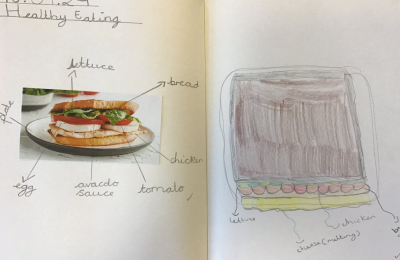 Healthy Eating
lettuce
bread
plate
chicken
egg
avacdo
sauce
tomato
lettuce
chicken
cheese (melting)